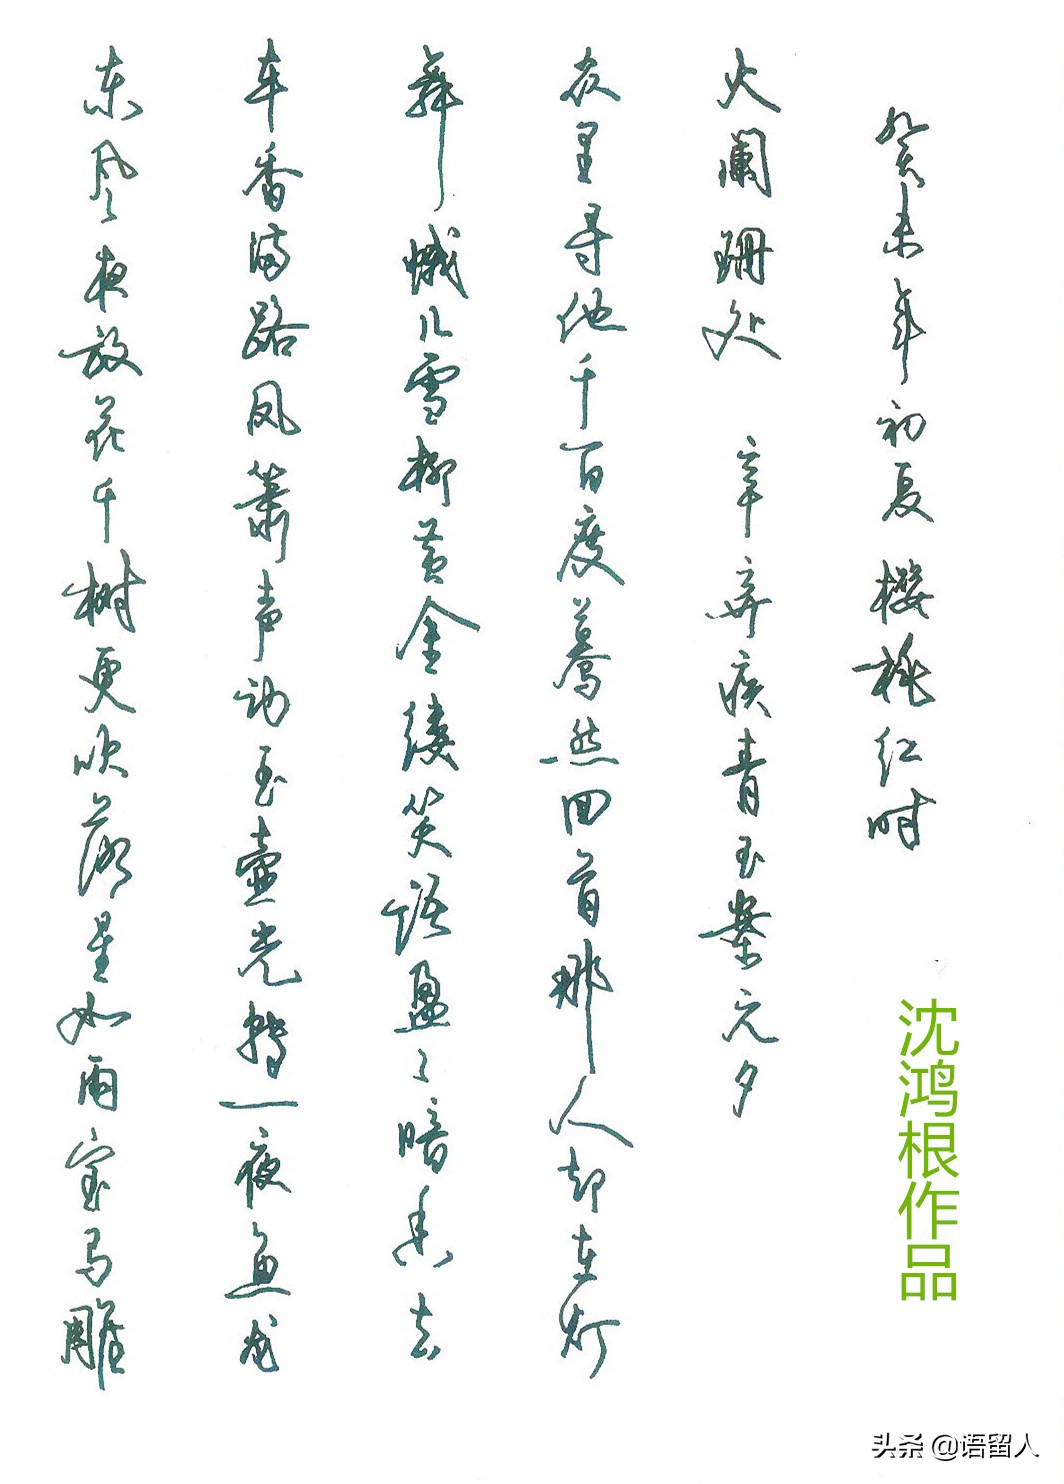 东风夜放花千树更吹落星如雨宝马雕
车香满路凤箫声动玉壶光转一夜鱼龙
舞蛾儿雪柳黄金缕笑语盈々暗香去
众里寻他千百度蓦然回首那人却在灯
火阑珊处 辛弃疾青玉案元夕
癸未年初夏樱桃红时
沈鸿根作品
头条 @语留人